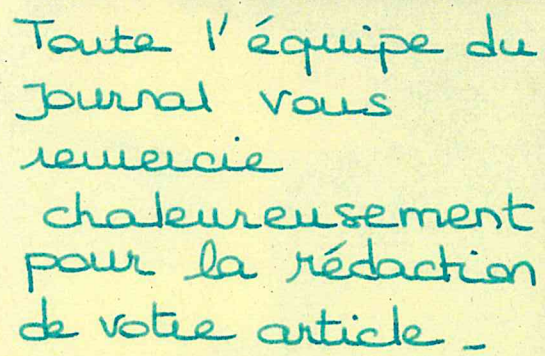 Toute l'équipe du
Journal vous
remercie
chaleureusement
pour la rédaction
de votre article -